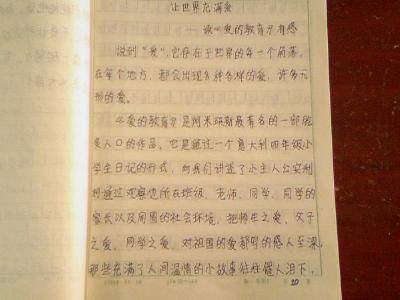 让世界充满爱
——读《爱的教育》有感
说到“爱”,它存在于世界的每一个角落,
在每个地方,都会出现各种各样的爱,许多无
形的爱。
《爱的教育》是阿米琪斯最著名的一部脍
炙人口的作品。它是通过一个意大利四年级小
学生日记的形式,向我们讲述了小主人公安利
柯通过观察他所在班级、老师、同学、同学的
家长以及周围的社会环境,把师生之爱、父子
之爱、同学之爱、对祖国的爱都写的感人至深,
那些充满了人间温情的小故事往往催人泪下,
20